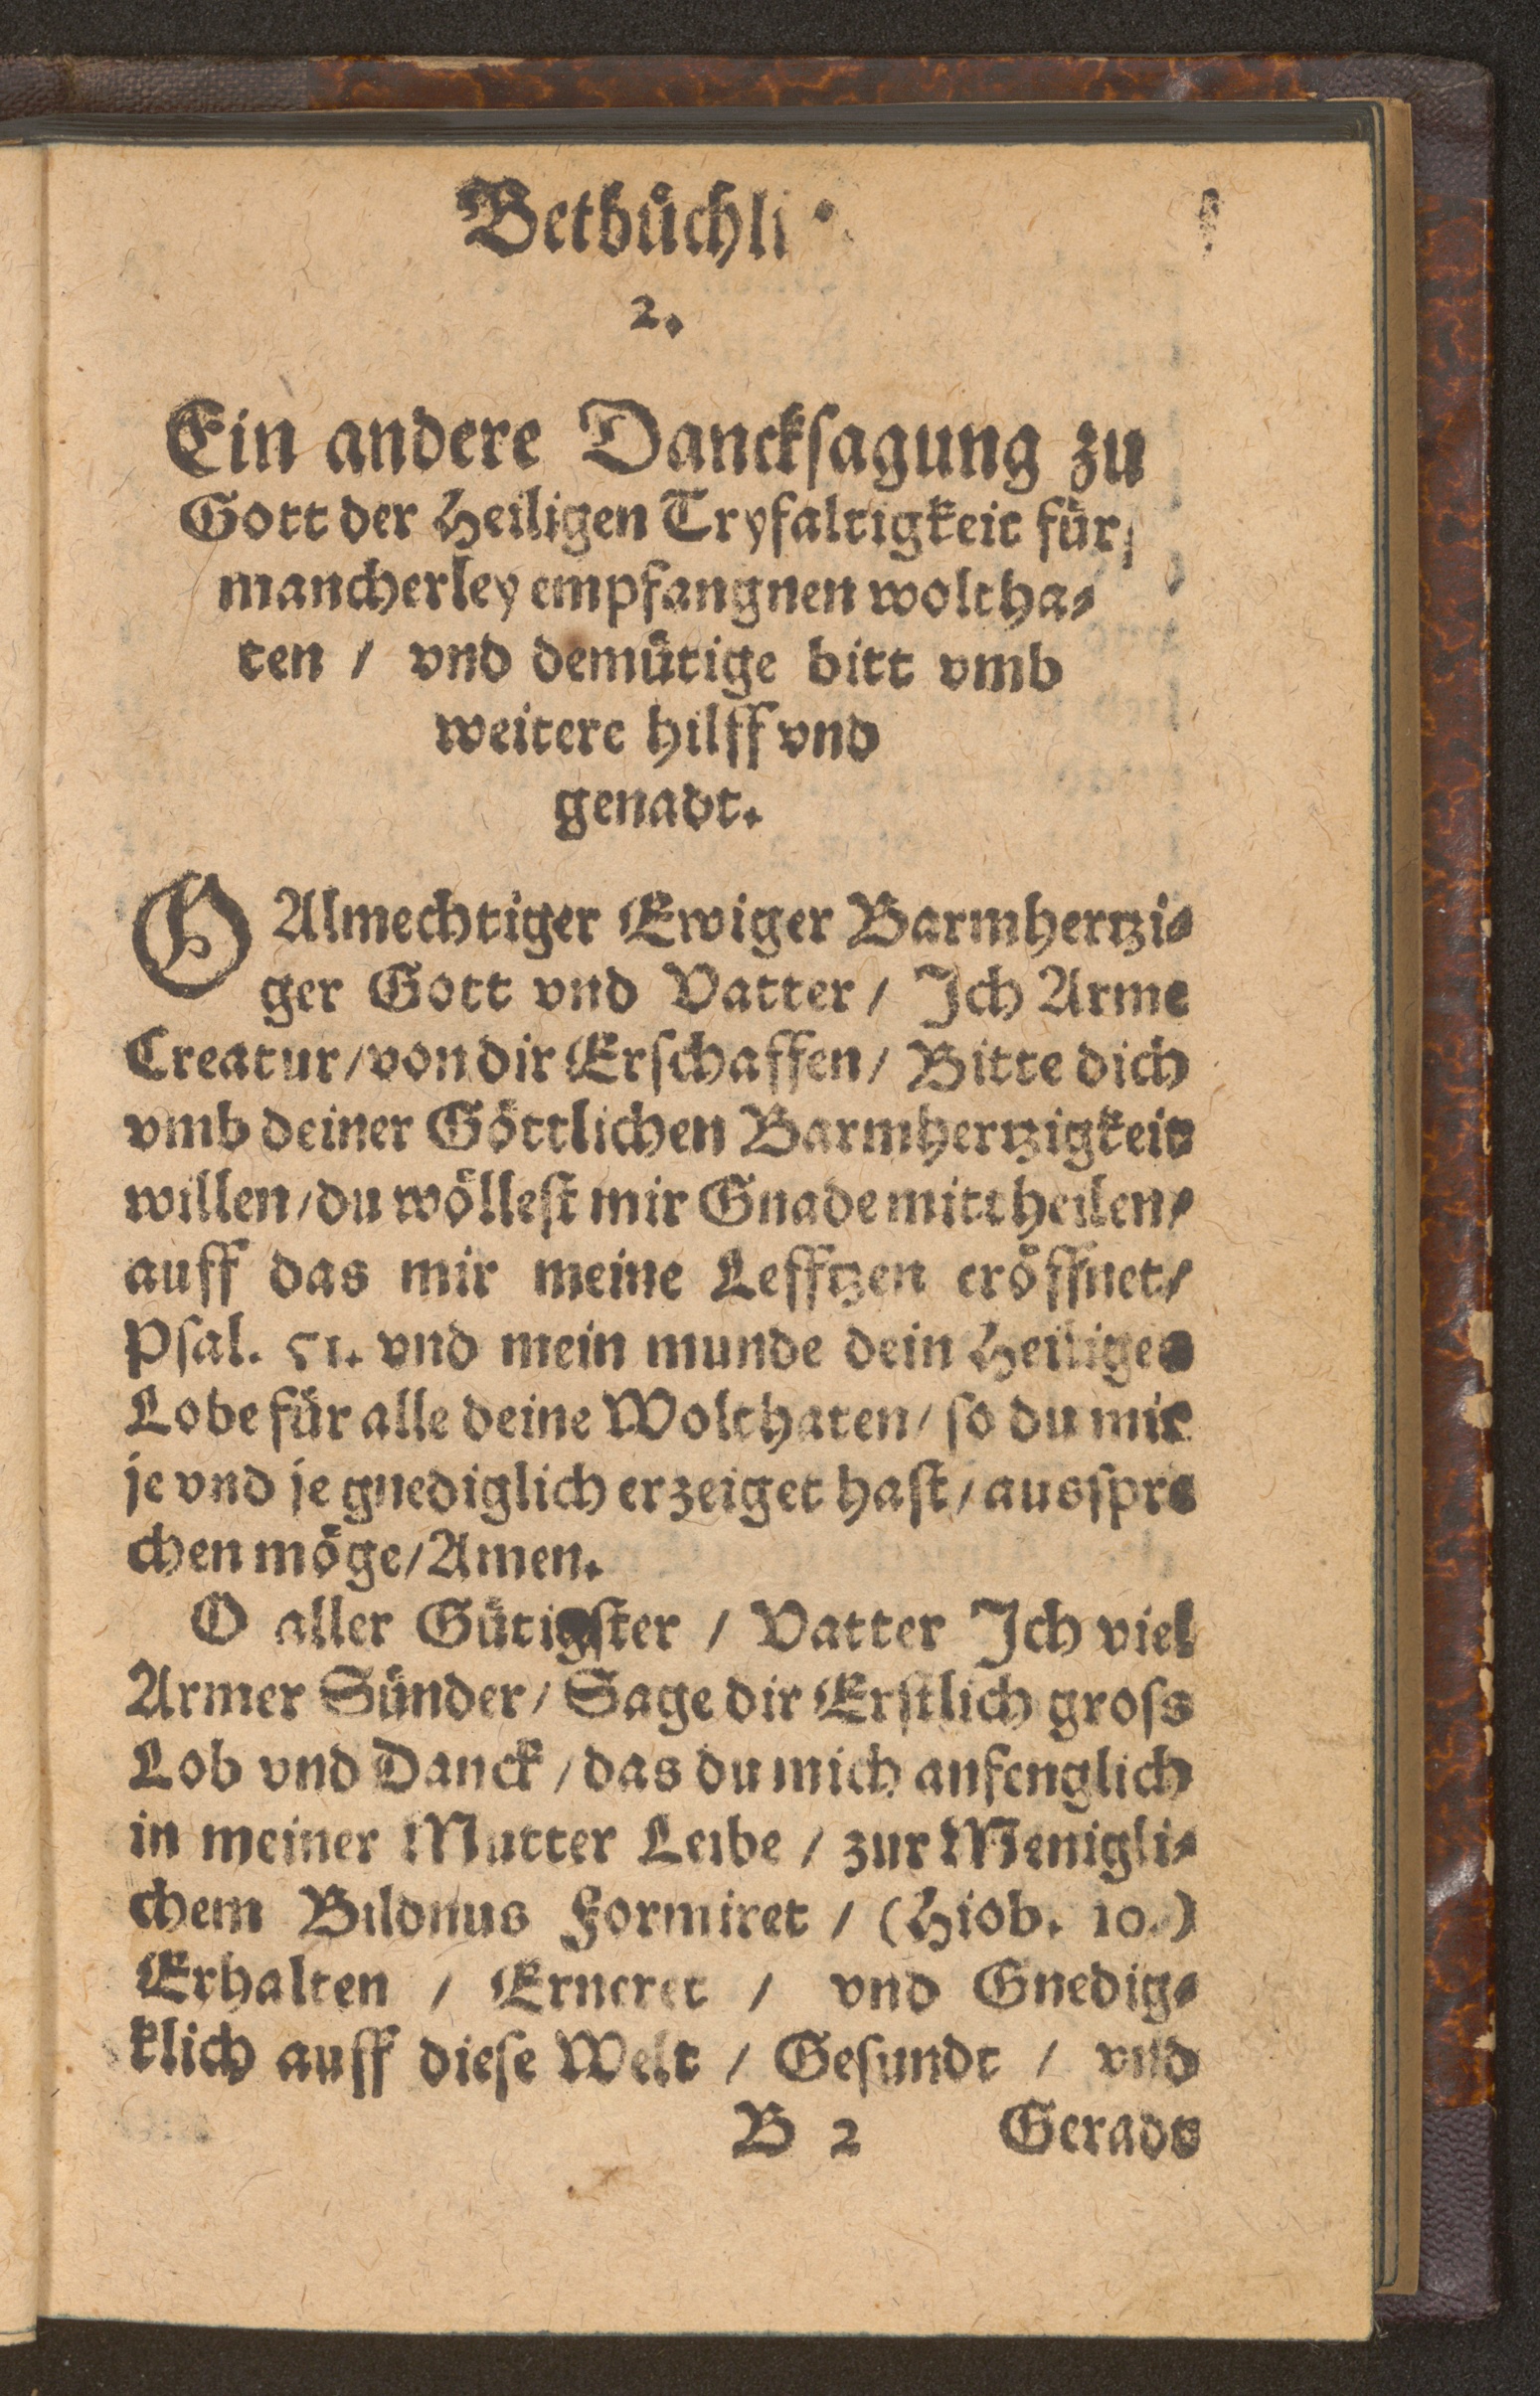 Betbüchli
2.
Ein andere Dancksagung zu
Gott der Heiligen Tryfaltigkeit für
mancherley empfangnen woltha-
ten / vnd demütige bitt vmb
weitere hilff vnd
genadt.
O Almechtiger Ewiger Barmhertzi-
ger Gott vnd Vatter / Ich Arme
Creatur / von dir Erschaffen / Bitte dich
vmb deiner Göttlichen Barmhertzigkeit
willen / du wöllest mir Gnade mittheilen /
auff das mir meine Lefftzen eröffnet /
Psal. 51. vnd mein munde dein Heiliges
Lobe für alle deine Wolthaten / so du mir
je vnd je gnediglich erzeiget hast / ausspre
chen möge / Amen.
O aller Gütigster / Vatter Ich viel
Armer Sünder / Sage dir Erstlich gross
Lob vnd Danck / das du mich anfenglich
in meiner Mutter Leibe / zur Menigli-
chem Bildnus Formiret / (Hiob. 10.)
Erhalten / Erneret / vnd Gnedig-
klich auff diese Welt / Gesundt / vnd
B 2 Geradt